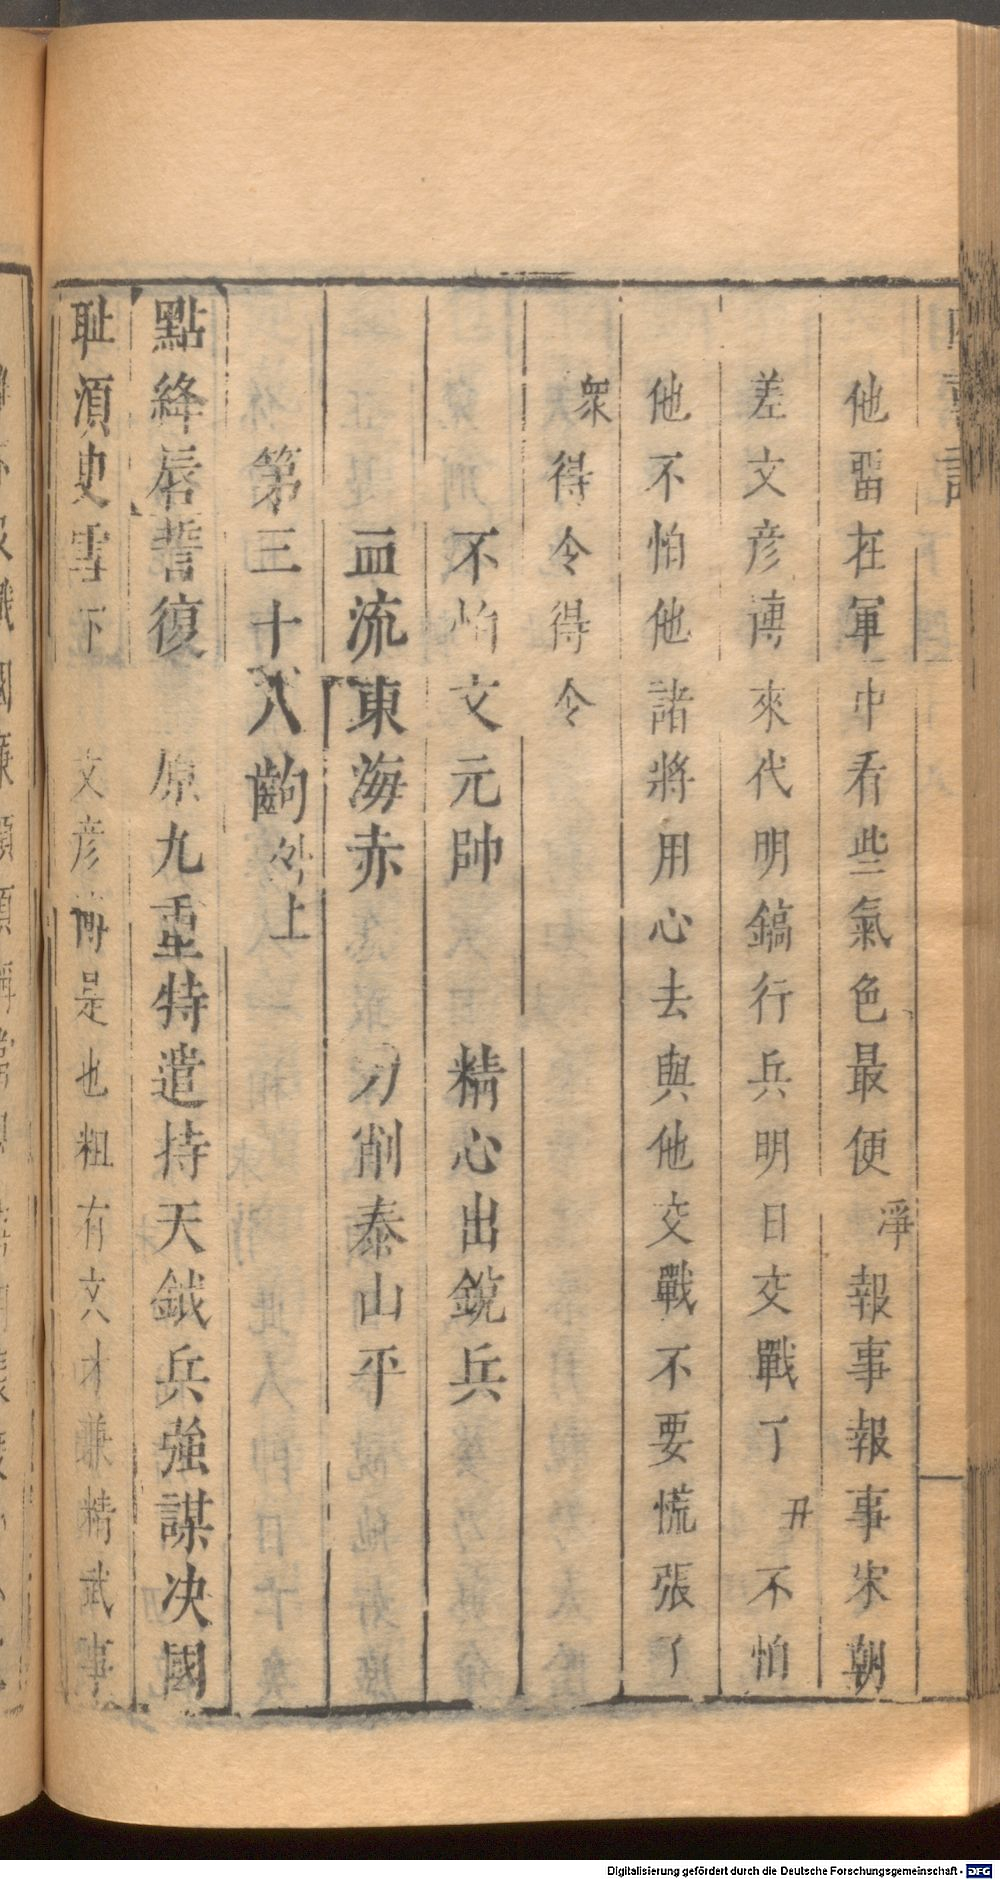 他畱在軍中看些氣色最便淨報事報事宋朝
差文彦博來代明鎬行兵明日交戰了丑不怕
他不怕他諸將用心去與他交戰不要慌張了
衆得令得令
不怕文元帥 精心出銳兵
血流東海赤 刀削泰山平
第三十八齣外上
點絳唇誓復 原九重特遣持天鉞兵強謀决國
耻須臾雪下 文彦博是也粗有文才兼精武事
Digitalisierung gefördert durch die Deutsche Forschungsgemeinschaft - DFG